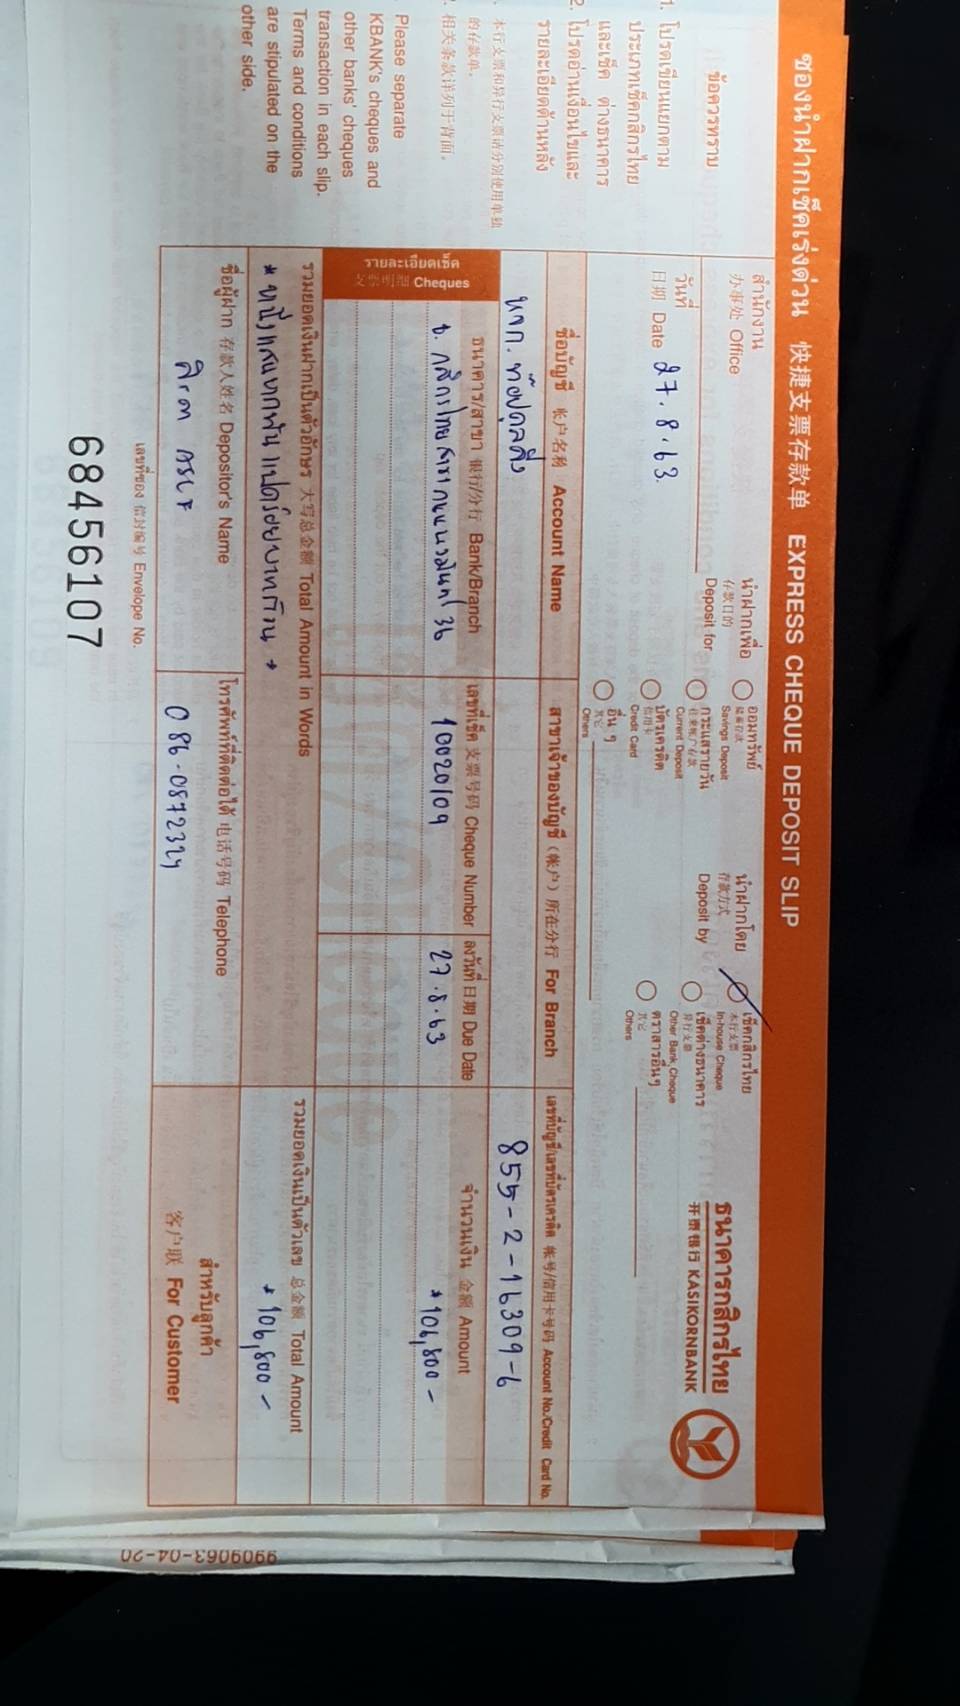 ซองนำฝากเช็คเร่งด่วน 快捷支票存款单 EXPRESS CHEQUE DEPOSIT SLIP
ธนาคารกสิกรไทย
开泰银行 KASIKORNBANK
ข้อควรทราบ
1. โปรดเขียนแยกตาม
ประเภทเช็คกสิกรไทย
และเช็ค ต่างธนาคาร
2. โปรดอ่านเงื่อนไขและ
รายละเอียดด้านหลัง
本行支票和异行支票请分别使用单独
的存款单.
相关条款详列于背面.
Please separate
KBANK's cheques and
other banks' cheques
transaction in each slip.
Terms and conditions
are stipulated on the
other side.
สำนักงาน
办事处 Office
วันที่
日期 Date 27.8.63
นำฝากเพื่อ
存款目的
Deposit for
ออมทรัพย์
Savings Deposit
กระแสรายวัน
Current Deposit
บัตรเครดิต
信用卡
Credit Card
อื่น ๆ
其它
Others
นำฝากโดย
存款方式
Deposit by
เช็คกสิกรไทย
本行支票
In-house Cheque
เช็คต่างธนาคาร
异行支票
Other Bank Cheque
ตราสารอื่นๆ
其它
Others
ชื่อบัญชี 帐户名称 Account Name
สาขาเจ้าของบัญชี (帐户) 所在分行 For Branch
เลขที่บัญชี/เลขที่บัตรเครดิต 帐号/信用卡号码 Account No./Credit Card No.
หจก. 855-2-16309-6
รายละเอียดเช็ค
支票明细 Cheques
ธนาคาร/สาขา 银行/分行 Bank/Branch
เลขที่เช็ค 支票号码 Cheque Number
ลงวันที่ 日期 Due Date
จำนวนเงิน 金额 Amount
ธ. กสิกรไทย 10020109 27.8.63 *106,800-
รวมยอดเงินฝากเป็นตัวอักษร 大写总金额 Total Amount in Words
รวมยอดเงินเป็นตัวเลข 总金额 Total Amount
* หนึ่งแสนหกพันแปดร้อยบาทถ้วน *
* 106,800-
ชื่อผู้ฝาก 存款人姓名 Depositor's Name
โทรศัพท์ที่ติดต่อได้ 电话号码 Telephone
086-0872324
สำหรับลูกค้า
客户联 For Customer
เลขที่ซอง 信封编号 Envelope No.
68456107
909063-04-20